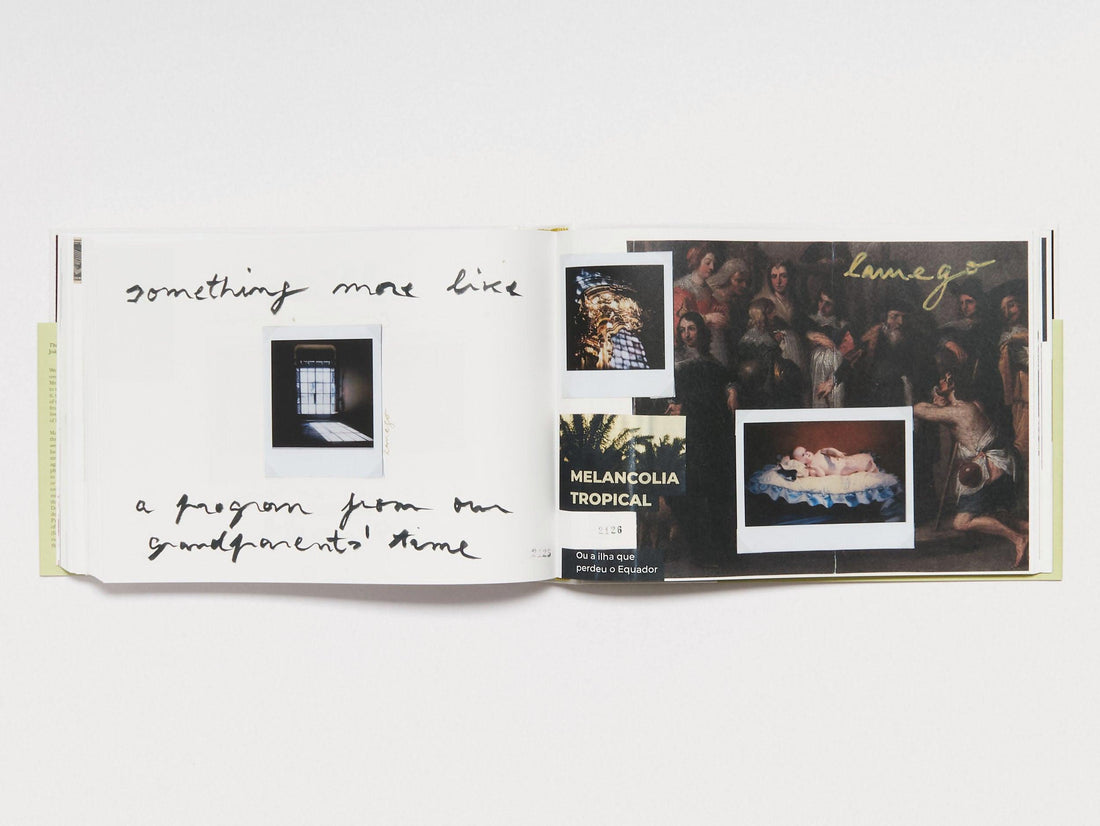 something more like
lamego
a program from our
grandparents' time
2125
lamego
MELANCOLIA
TROPICAL
2126
Ou a ilha que
perdeu o Equador